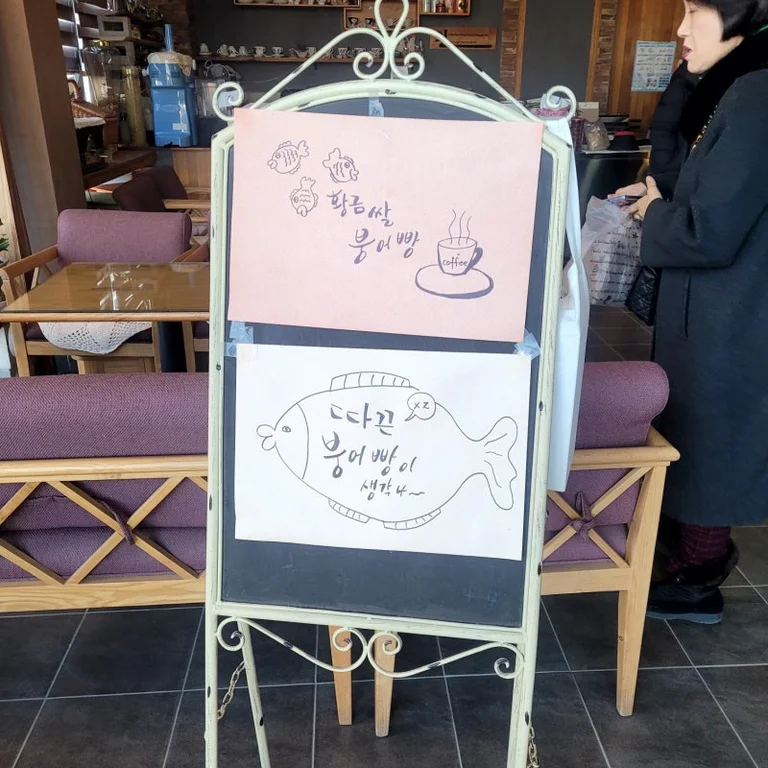 황금쌀
붕어빵
coffee
따끈
x2
붕어빵이
생각나~